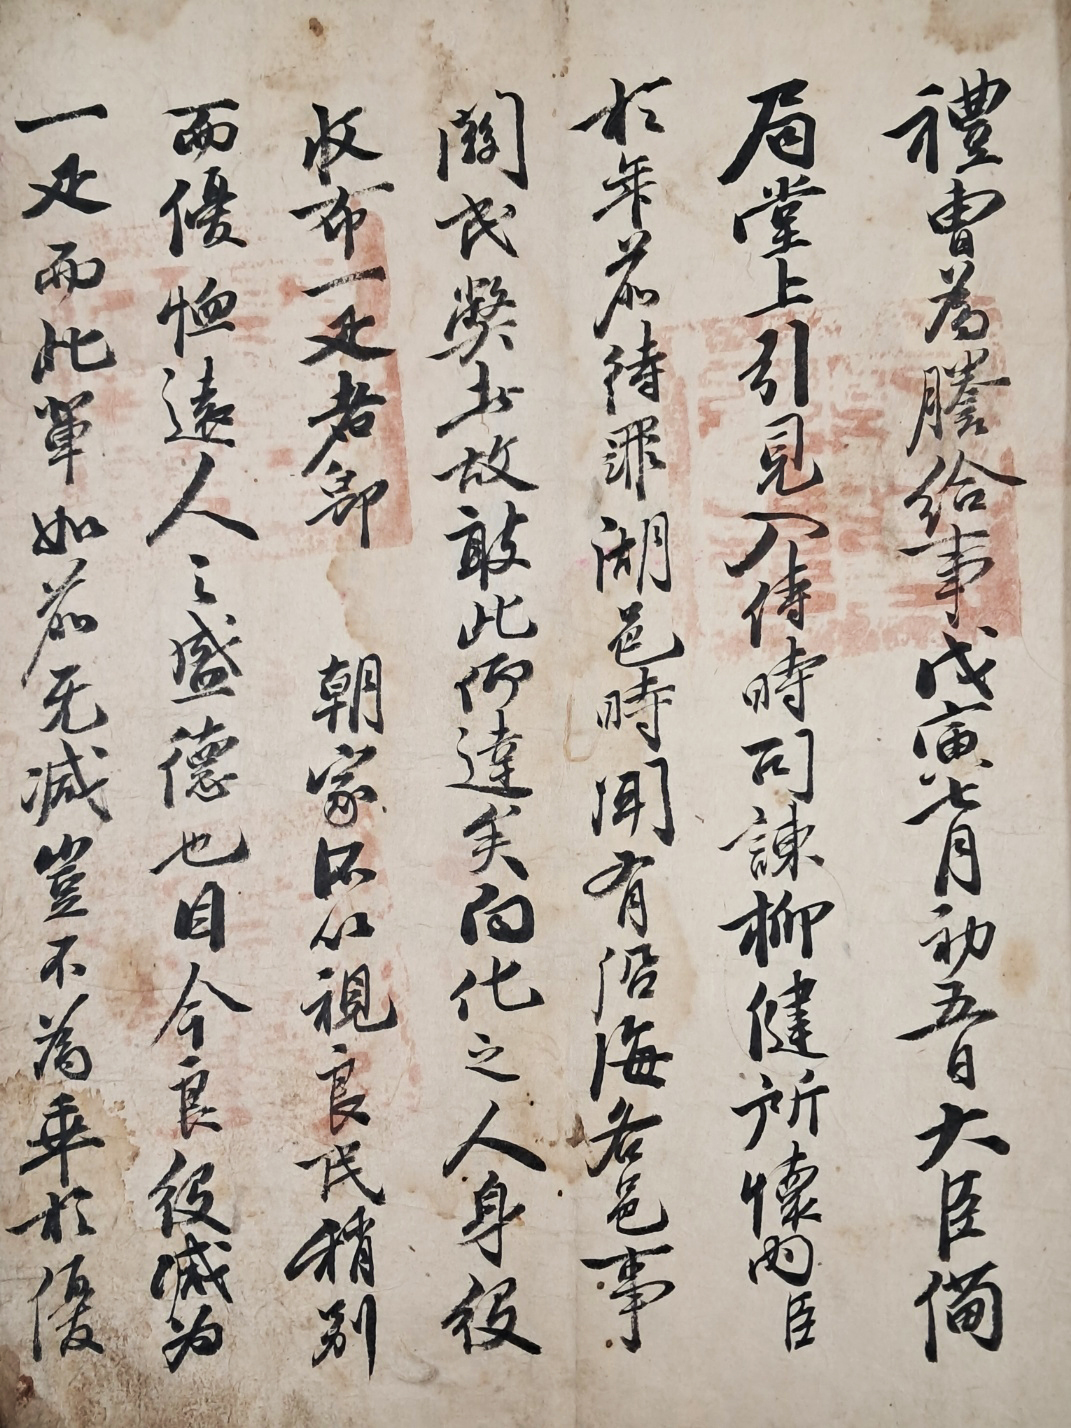 禮曺為謄給事戊寅七月初五日大臣備
局堂上引見入侍時司諫柳健所懷內臣
於年前待罪湖邑時聞有沿海各邑事
関民弊玆故敢此仰達矣向化之人身役
收布一疋者即 朝家所以視良民稍別
而優恤遠人之盛德也目今良役減為
一疋而此軰如前無減豈不為乖於優